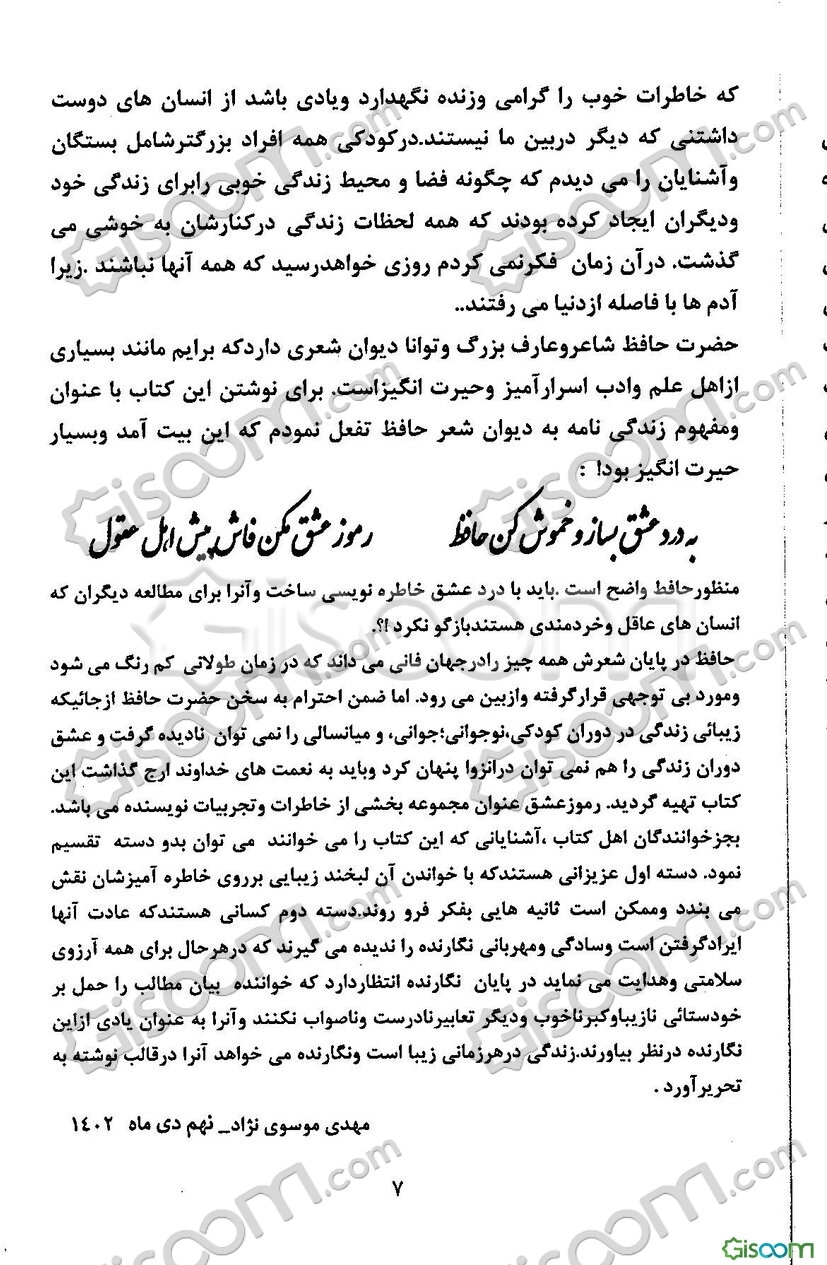 که خاطرات خوب را گرامی وزنده نگهدارد ویادی باشد از انسان های دوست
داشتنی که دیگر دربین ما نیستند.درکودکی همه افراد بزرگترشامل بستگان
وآشنایان را می دیدم که چگونه فضا و محیط زندگی خوبی رابرای زندگی خود
ودیگران ایجاد کرده بودند که همه لحظات زندگی درکنارشان به خوشی می
گذشت. درآن زمان فکرنمی کردم روزی خواهدرسید که همه آنها نباشند .زیرا
آدم ها با فاصله ازدنیا می رفتند..
حضرت حافظ شاعروعارف بزرگ وتوانا دیوان شعری داردکه برایم مانند بسیاری
ازاهل علم وادب اسرارآمیز وحیرت انگیزاست. برای نوشتن این کتاب با عنوان
ومفهوم زندگی نامه به دیوان شعر حافظ تفعل نمودم که این بیت آمد وبسیار
حیرت انگیز بود! :
به درد عشق بساز و خموش کن حافظ رموز عشق مکن فاش پیش اهل عقول
منظورحافط واضح است .باید با درد عشق خاطره نویسی ساخت وآنرا برای مطالعه دیگران که
انسان های عاقل وخردمندی هستندبازگو نکرد !؟.
حافظ در پایان شعرش همه چیز رادرجهان فانی می داند که در زمان طولاتی کم رنگ می شود
ومورد بی توجهی قرارگرفته وازبین می رود. اما ضمن احترام به سخن حضرت حافظ ازجائیکه
زیبائی زندگی در دوران کودکی،نوجوانی؛جوانی، و میانسالی را نمی توان نادیده گرفت و عشق
دوران زندگی را هم نمی توان درانزوا پنهان کرد وباید به نعمت های خداوند ارج گذاشت این
کتاب تهیه گردید. رموزعشق عنوان مجموعه بخشی از خاطرات وتجربیات نویسنده می باشد.
بجزخوانندگان اهل کتاب ،آشنایانی که این کتاب را می خوانند می توان بدو دسته تقسیم
نمود. دسته اول عزیزانی هستندکه با خواندن آن لبخند زیبایی برروی خاطره آمیزشان نقش
می بندد وممکن است ثانیه هایی بفکر فرو روند.دسته دوم کسانی هستندکه عادت آنها
ایرادگرفتن است وسادگی ومهربانی نگارنده را ندیده می گیرند که درهرحال برای همه آرزوی
سلامتی وهدایت می نماید در پایان نگارنده انتظاردارد که خواننده بیان مطالب را حمل بر
خودستائی نازیباوکبرناخوب ودیگر تعابیرنادرست وناصواب نکنند وآنرا به عنوان یادی ازاین
نگارنده درنظر بیاورند.زندگی درهرزمانی زیبا است ونگارنده می خواهد آنرا درقالب نوشته به
تحریرآورد .
مهدی موسوی نژاد_ نهم دی ماه ۱۴۰۲
۷
Gisoom